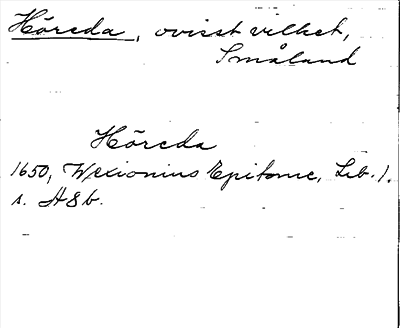 Höreda, ovisst vilket,
Småland
Höreda
1650, Wexionius Epitome, Lib. 1.
s. A8b.